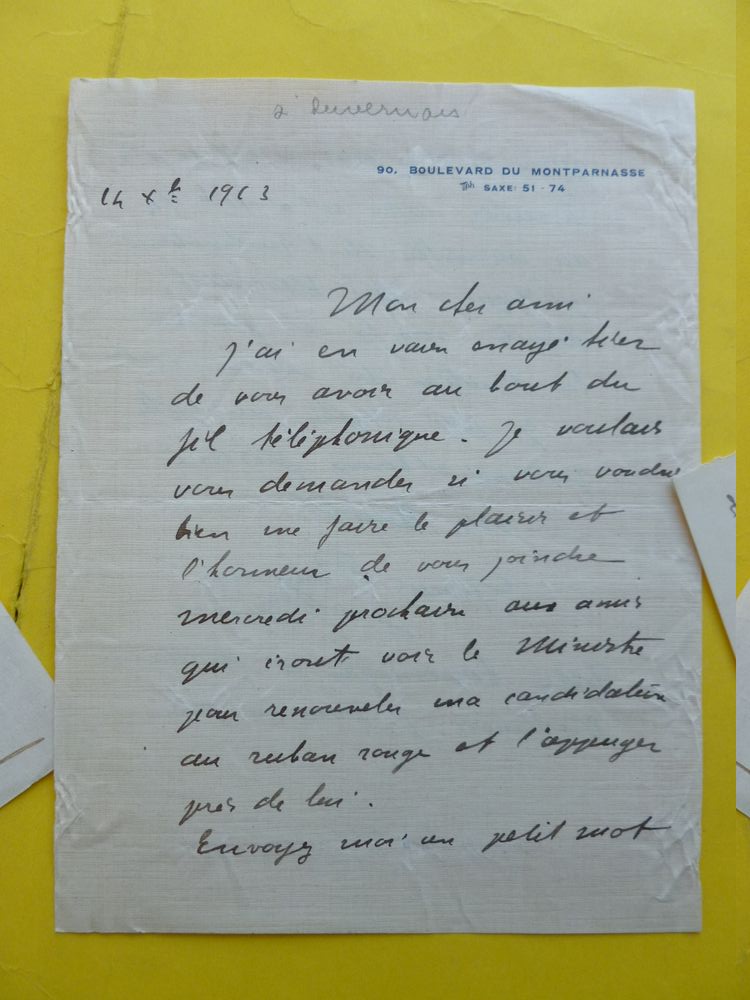 à Duvernois
90, BOULEVARD DU MONTPARNASSE
Tph SAXE: 51 - 74
14 Xbre 1913
Mon cher ami
J'ai en vain essayé hier
de vous avoir au bout du
fil téléphonique. Je voulais
vous demander si vous voudriez
bien me faire le plaisir et
l'honneur de vous joindre
mercredi prochain aux amis
qui iront voir le Ministre
pour renouveler ma candidature
au ruban rouge et l'appuyer
près de lui.
Envoyez moi un petit mot